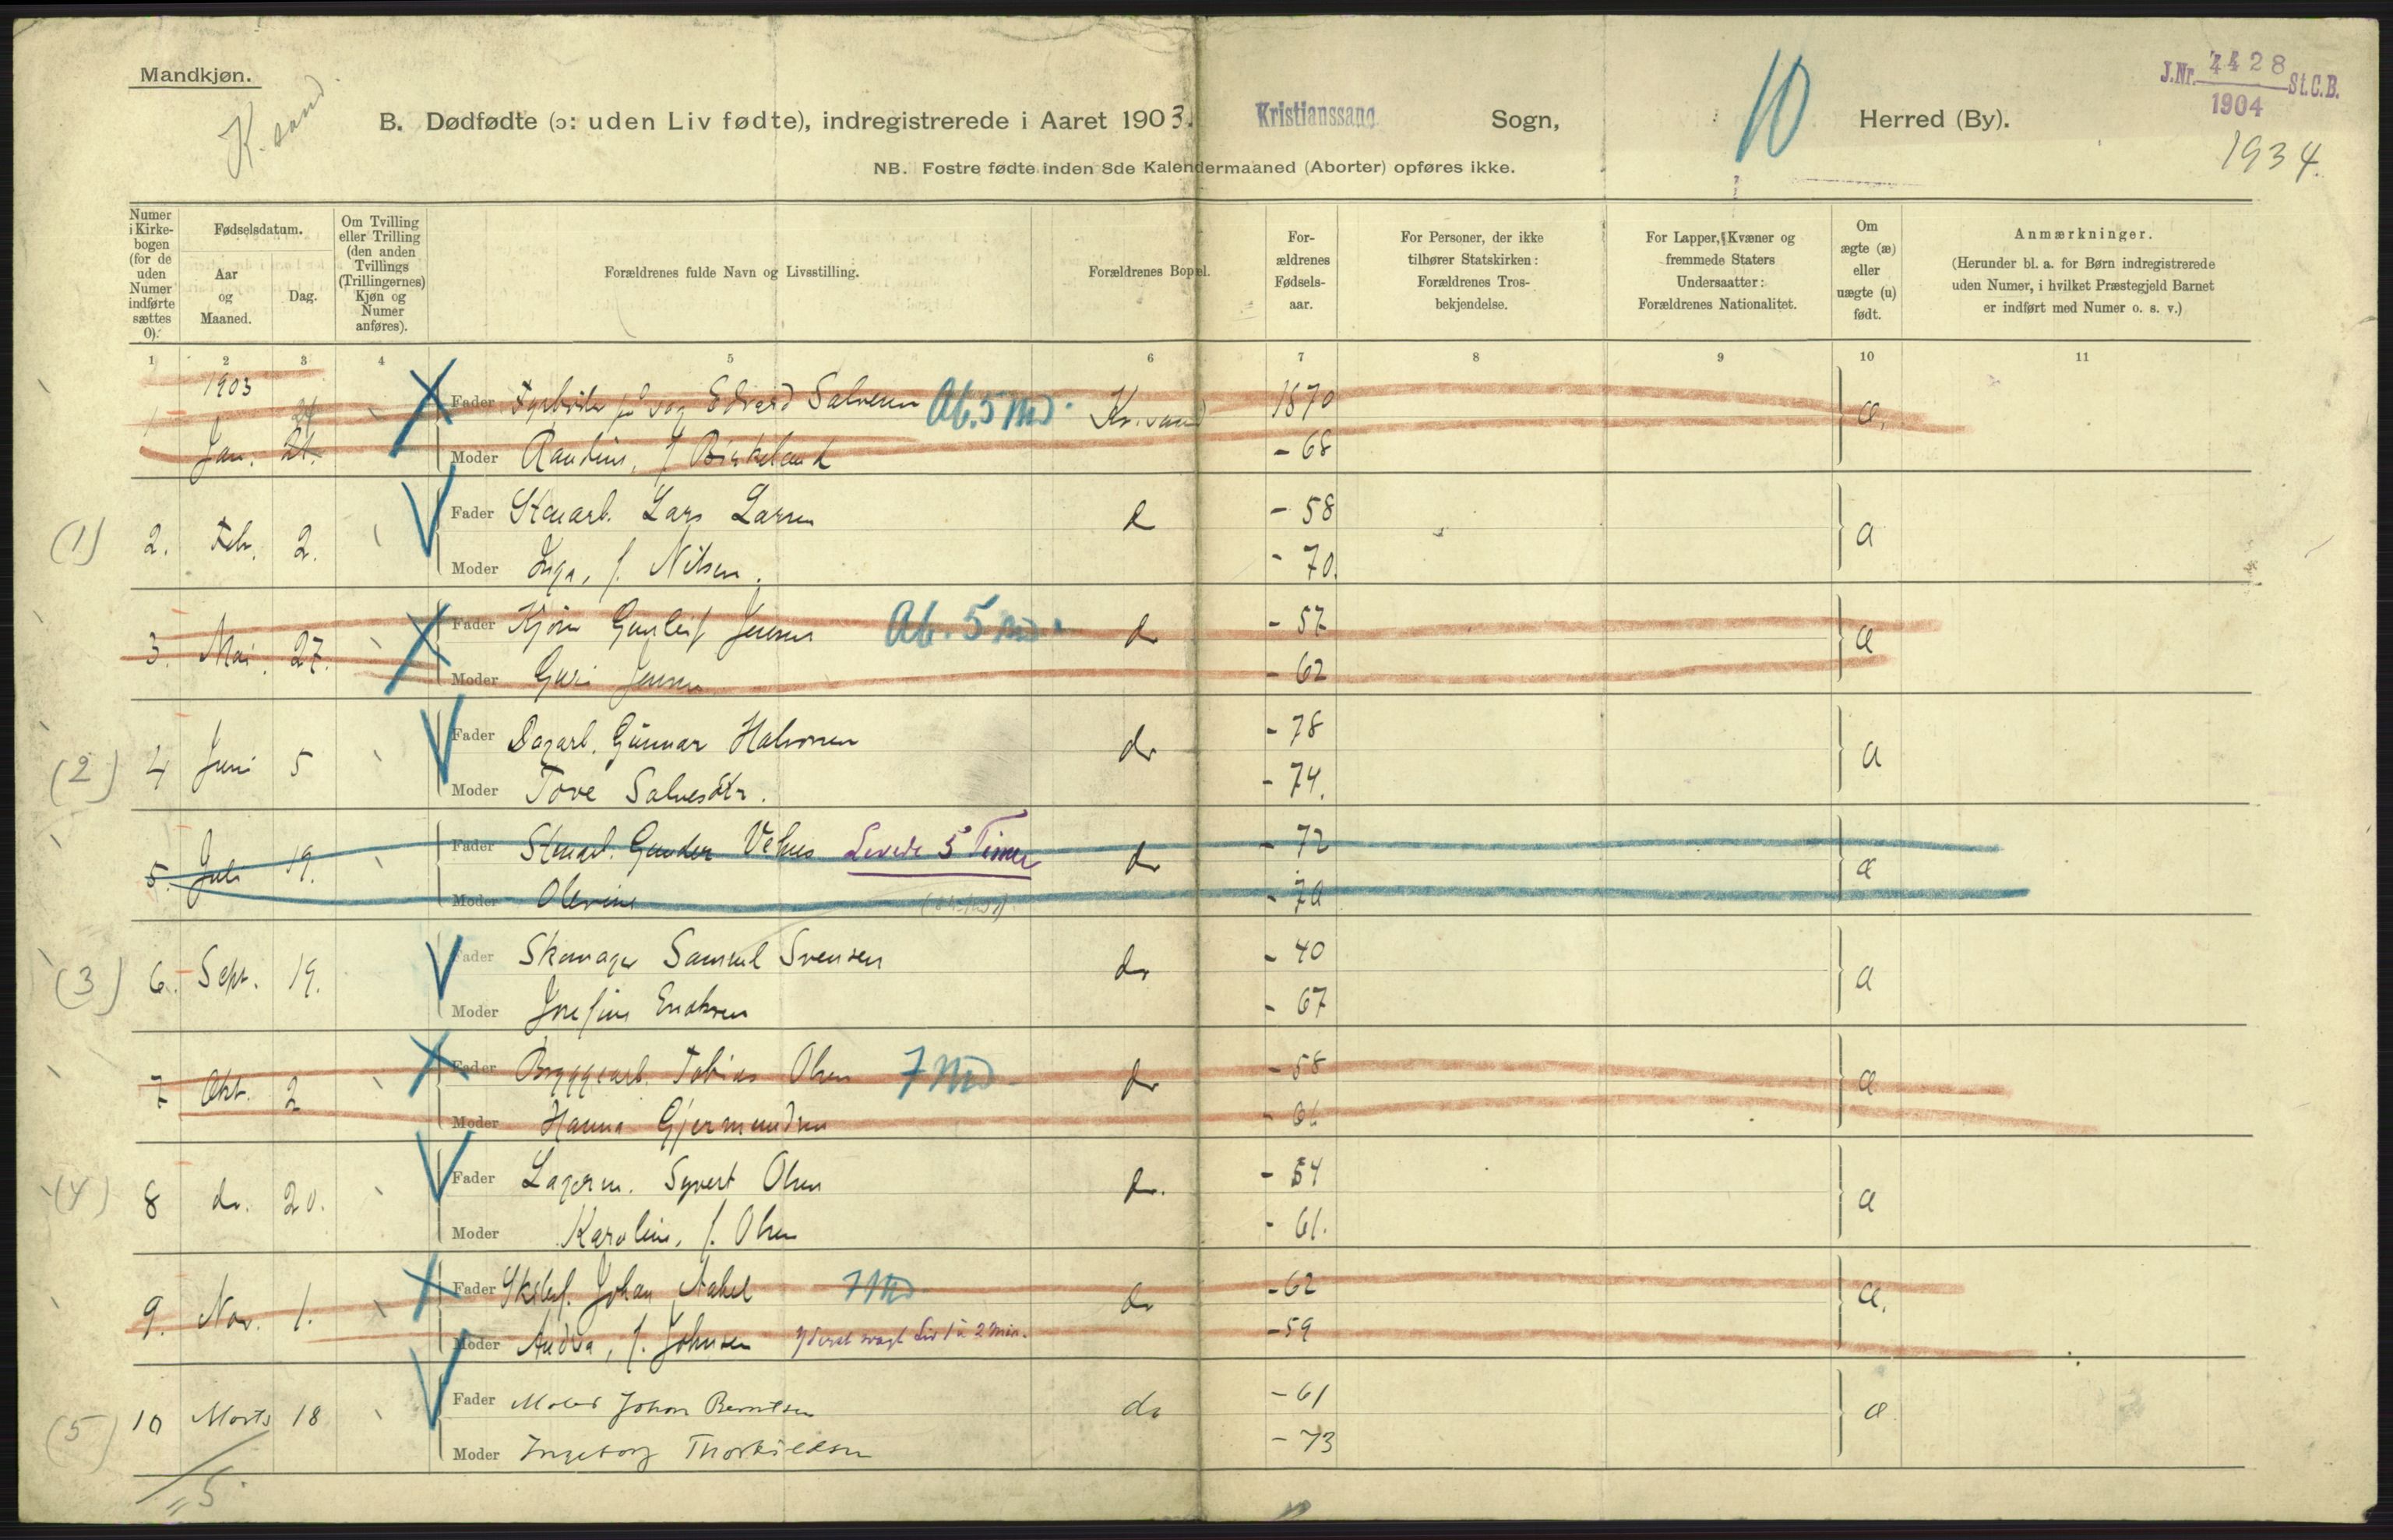 Mandkjøn.
K.sand
B. Dødfødte (ɔ: uden Liv fødte), indregistrerede i Aaret 1903. Kristianssand Sogn, 10 Herred (By).
J.Nr. 4428 St.C.B.
1904
1934.
NB. Fostre fødte inden 8de Kalendermaaned (Aborter) opføres ikke.
Numer i Kirke-bogen (for de uden Numer indførte sættes 0).
Fødselsdatum.
Aar og Maaned.
Dag.
Om Tvilling eller Trilling (den anden Tvillings (Trillingernes) Kjøn og Numer anføres).
Forældrenes fulde Navn og Livsstilling.
Forældrenes Bopel.
For-ældrenes Fødsels-aar.
For Personer, der ikke tilhører Statskirken: Forældrenes Tros-bekjendelse.
For Lapper, Kvæner og fremmede Staters Undersaatter: Forældrenes Nationalitet.
Om ægte (æ) eller uægte (u) født.
Anmærkninger.
(Herunder bl. a. for Børn indregistrerede uden Numer, i hvilket Præstegjeld Barnet er indført med Numer o. s. v.)
1 2 3 4 5 6 7 8 9 10 11
1903
Fader Edvard Salvesen Ab. 5 Md. Kr.sand 1870 æ.
Jan. 21. Moder Randine, f. Birkeland - 68
(1) 2. Feb. 2. Fader Stenarb. Lars Larsen d - 58 æ
Moder Inga, f. Nilsen. - 70.
3. Mai. 27. Fader Gunleif Jensen Ab. 5 Md. do - 57 æ
Moder Guri Jensen - 62
(2) 4 Juni 5 Fader Dagarb. Gunnar Halvorsen do - 78 æ
Moder Tove Salvesdtr. - 74.
5. Juli 19. Fader Stenarb. Gunder Vehus Levede 5 Timer do - 72 æ
Moder Olevine - 70
(3) 6. Sept. 19. Fader Skomager Samuel Svensen do - 40 æ
Moder Josefine Enoksen - 67
7 Okt. 2 Fader Bryggearb. Tobias Olsen 7 Md. do - 58 æ
Moder Hanna Gjermundsen
(4) 8 do. 20. Fader Lagerm. Syvert Olsen do. - 54 æ
Moder Karoline, f. Olsen - 61.
9. Nov. 1. Fader Johan Nakel 7 Md. do - 62 æ.
Moder Andrea, f. Johnsen yderst svagt Liv 1 à 2 Min. - 59
(5) 10 Marts 18 Fader Maler Johan Berntsen do - 61 æ
Moder Ingeborg Thorkildsen - 73
5